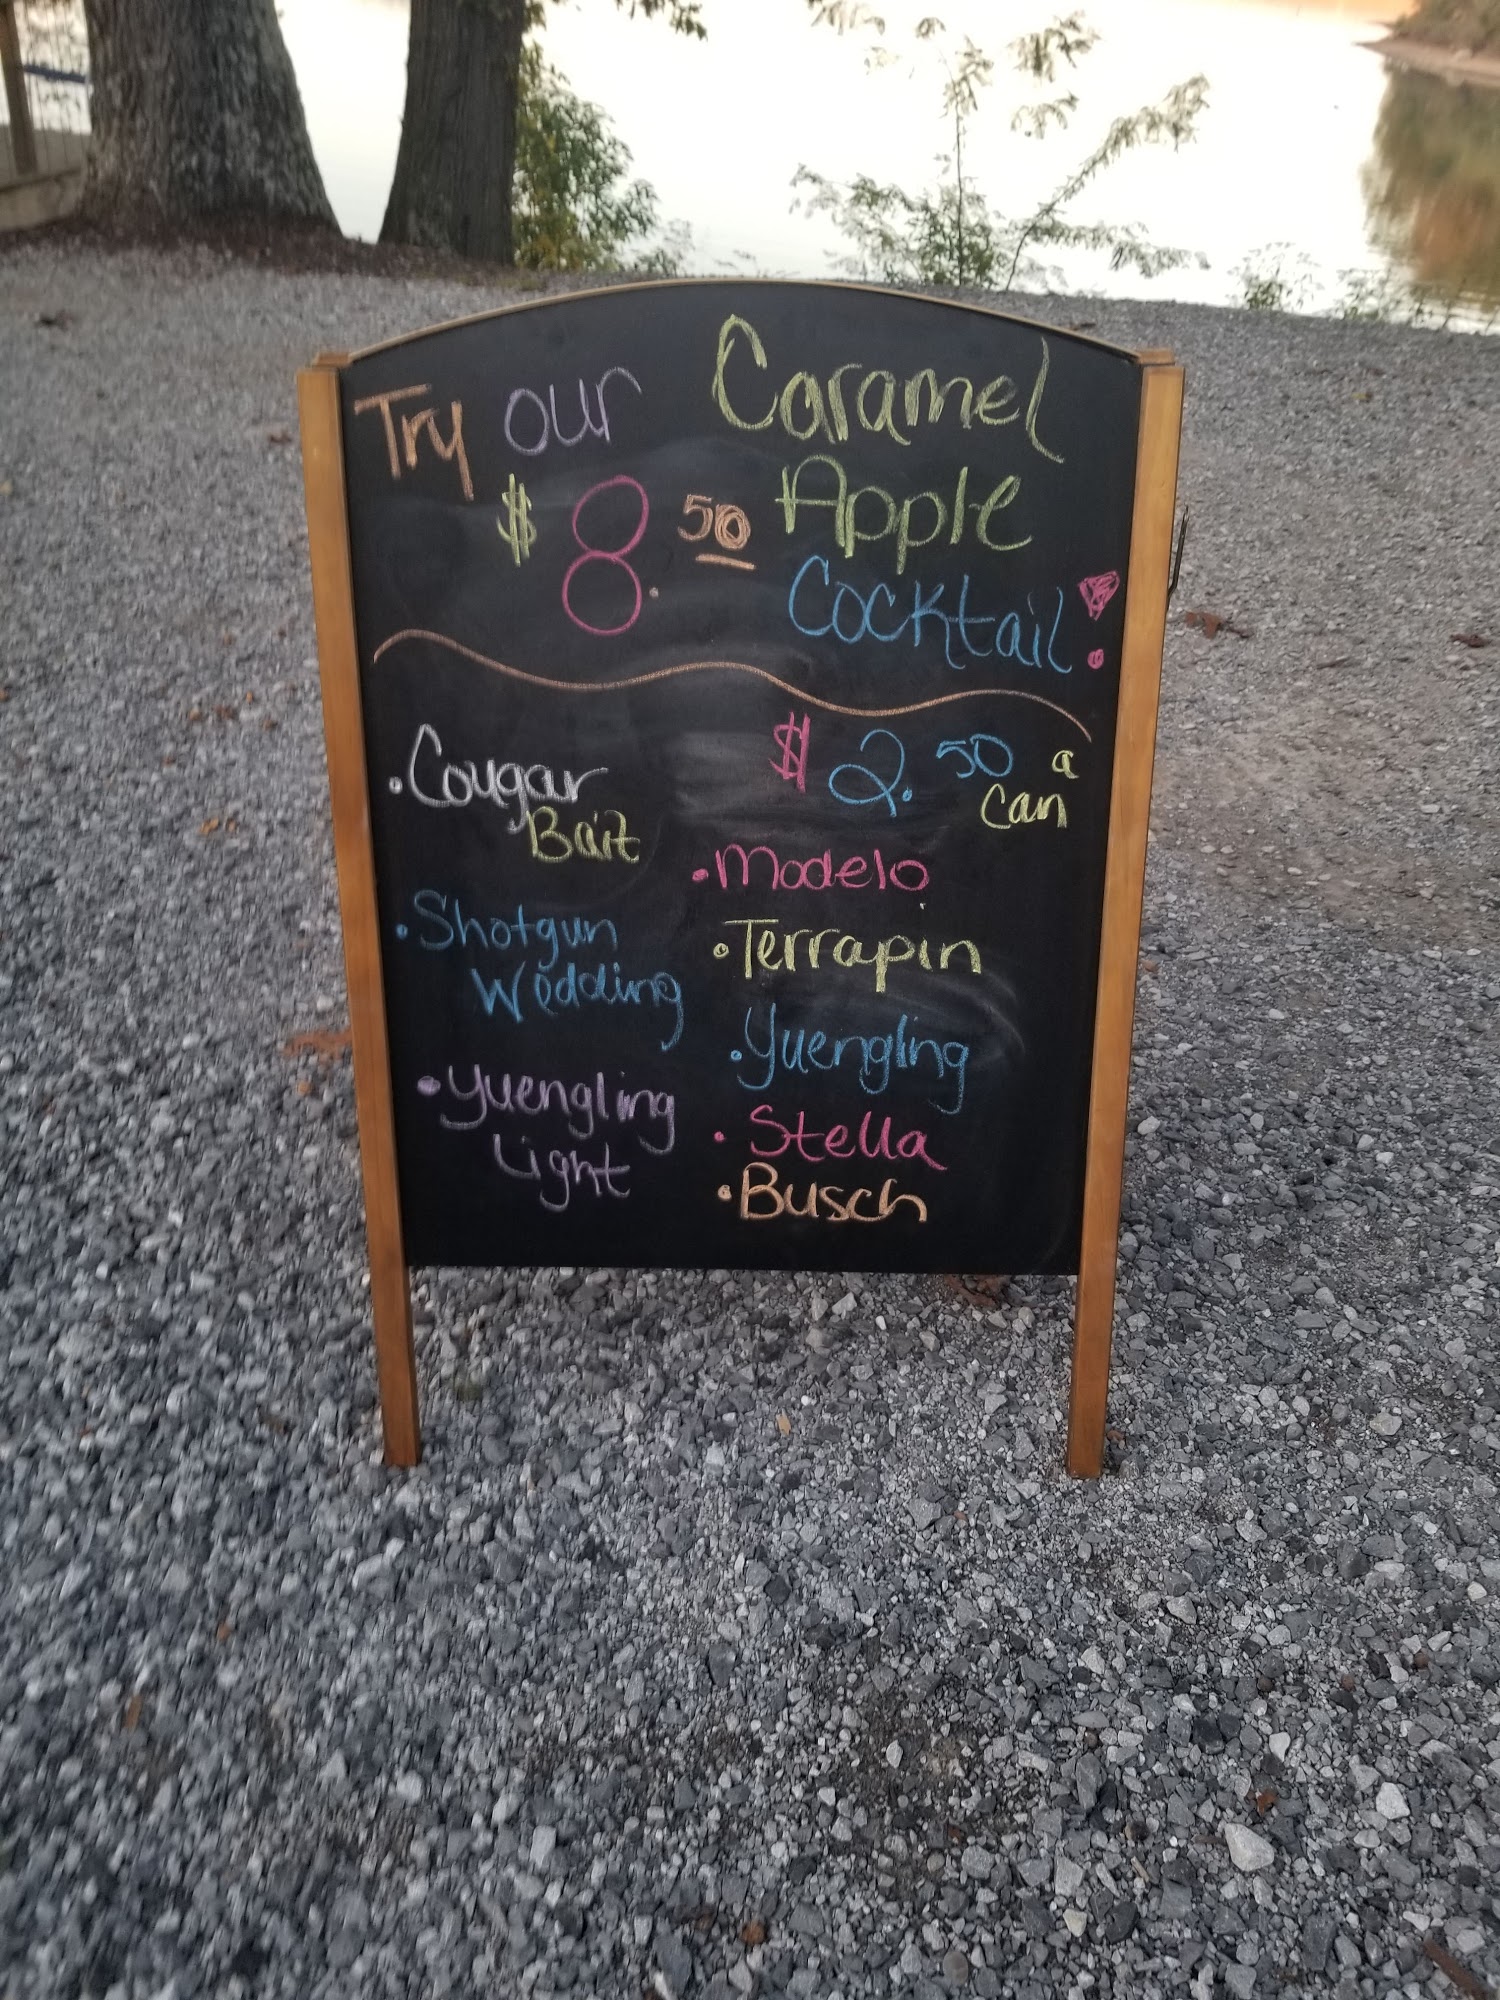 Try our Caramel
$8.50 Apple
Cocktail!
$2.50 a
can
• Cougar
Bait
• Shotgun
Wedding
• Yuengling
Light
• Modelo
• Terrapin
• Yuengling
• Stella
• Busch